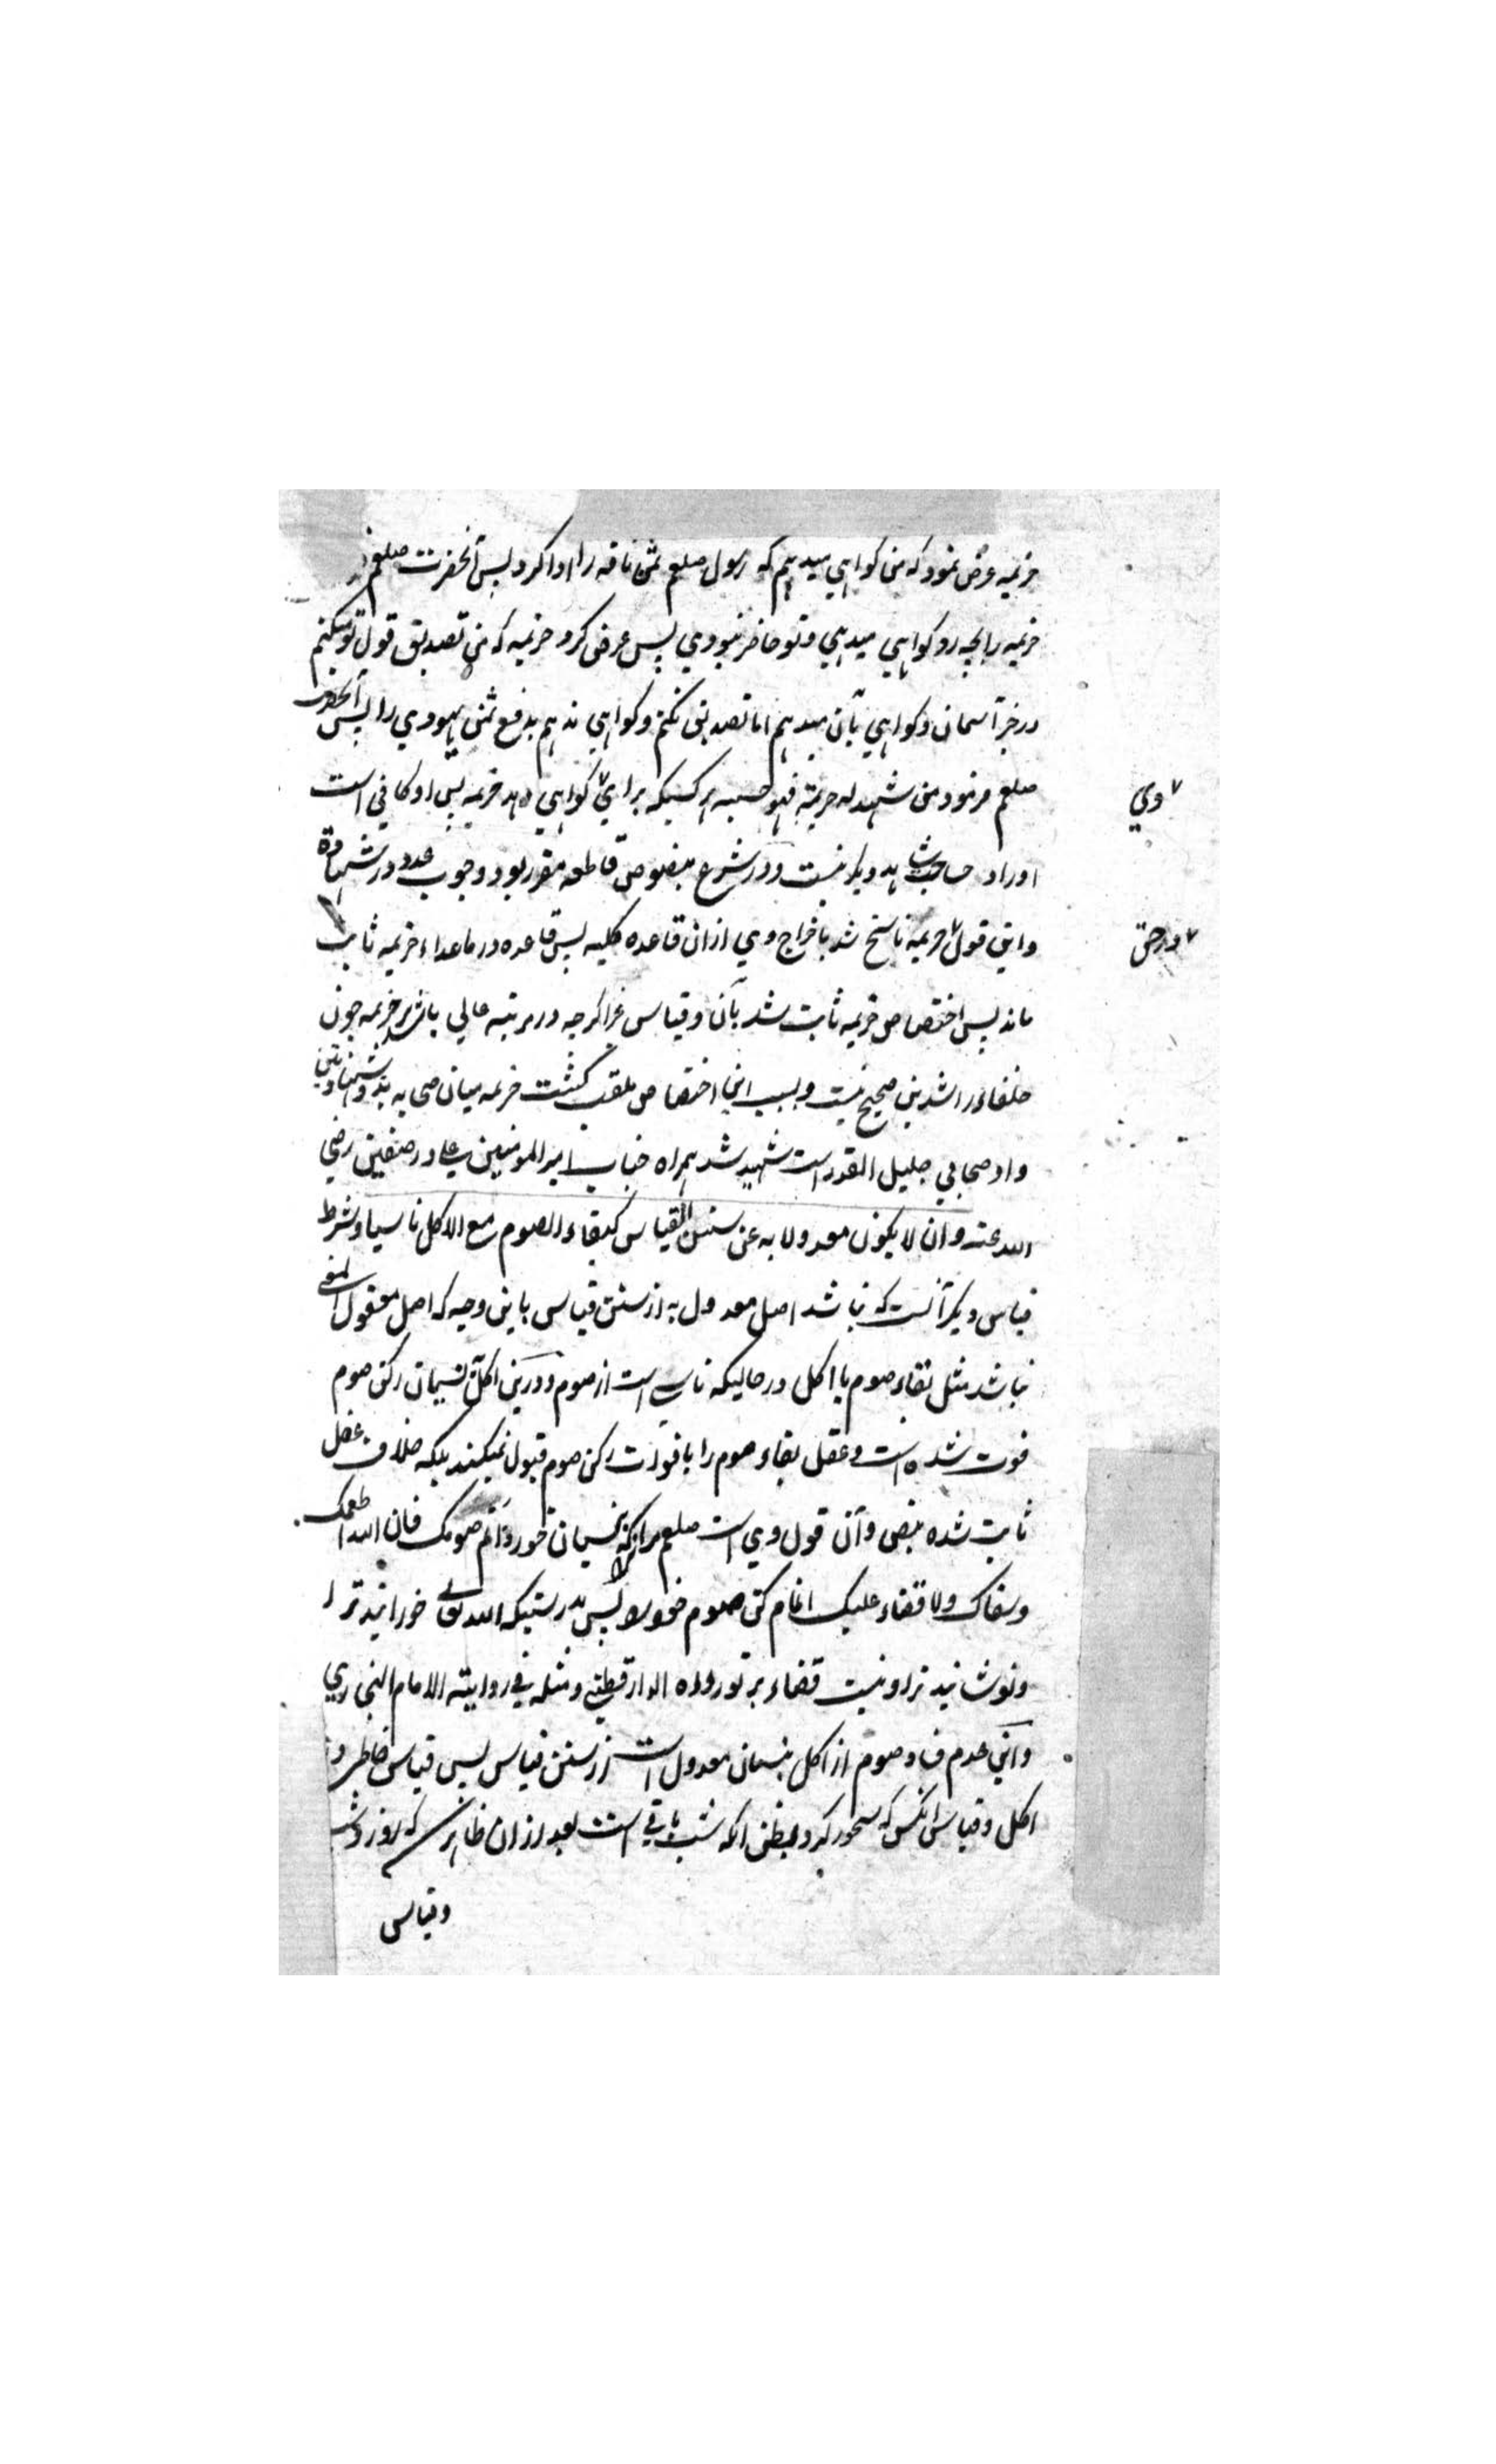 خزیمه عرض نمود که من کواهی میدهم که رسول صلعم ثمن ناقه را ادا کرد پس آنحضرت صلعم
خزیمه را بچه رو کواهی میدهی و تو حاضر نبودی پس عرض کرد خزیمه که من تصدیق قول تو میکنم
در خبر آسمان و کواهی بآن میدهم اما تصدیق نکنم و کواهی ندهم بدفع ثمن یهودی را پس آنحضرت
صلعم فرمود من شهد له خزیمة فهو حسبه هر کسیکه برای کواهی دهد خزیمه پس او کافی است
وی
اورا و حاجت شاهد دیکر نیست و در شرع بنصوص قاطعه مقرر بود وجوب عدد در شهادة
و این قول خزیمه ناسخ شد باخراج وی ازان قاعده کلیه پس قاعده در ماعداء خزیمه ثابت
در حق
ماند پس اختصاص خزیمه ثابت شد بآن و قیاس غیر اکرچه در مرتبه عالی باشد بر خزیمه چون
خلفاء راشدین صحیح نیست و بسبب این اختصاص ملقب کشت خزیمه میان صحابه بذو شهادتین
و او صحابی جلیل القدر است شهید شد همراه جناب امیر المومنین علی در صفین رضی
الله عنه و ان لا یکون معدولا به عن سنن القیاس کبقاء الصوم مع الاکل ناسیا و شرط
قیاس دیکر آنست که نباشد اصل معدول به از سنن قیاس باین وجه که اصل معقول المعنی
نباشد مثل بقاء صوم با اکل در حالیکه ناسی است از صوم و درین اکل نسیان رکن صوم
فوت شده است و عقل بقاء صوم را با فوات رکن صوم قبول نمیکند بلکه خلاف عقل
ثابت شده بنص و آن قول وی است صلعم مر آنرا که بنسیان خورد اتم صومک فان الله اطعمک
و سقاک ولا قضاء علیک اتمام کن صوم خود را پس بدرستیکه الله تعالی خورانید ترا
و نوشانید ترا و نیست قضاء بر تو رواه الدارقطنی و مثله فی روایته الامام البخاری
و این عدم فساد صوم از اکل بنسیان معدول است از سنن قیاس پس قیاس خاطی در
اکل و قیاس آنکس که سحور کرد بظن آنکه شب باقی است بعد ازان ظاهر که روز
و قیاس